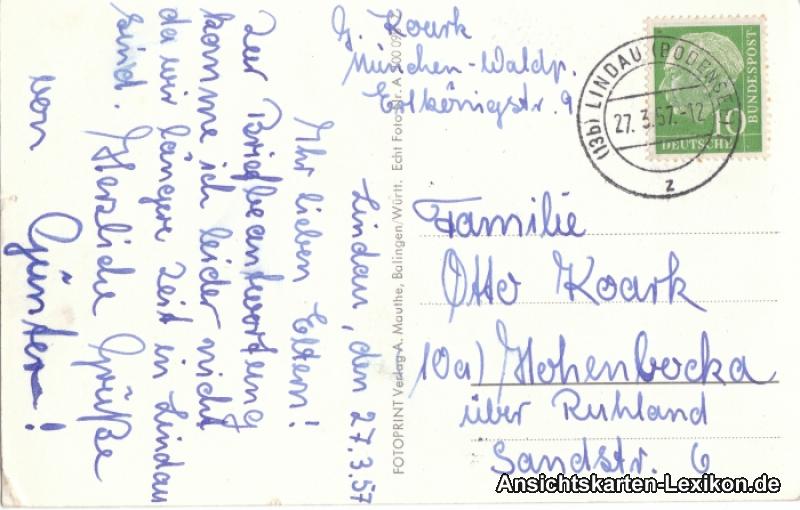 G. Koark
München-Waldp.
Erlkönigstr. 9
(13b) LINDAU (BODENSEE)
27. 3. 57.-12
z
10
DEUTSCHE
BUNDESPOST
Lindau, den 27.3.57
Ihr lieben Eltern!
Zur Briefbeantwortung
komme ich leider nicht
da wir längere Zeit in Lindau
sind. Herzliche Grüße
von
Günter!
FOTOPRINT Verlag A. Mauthe, Balingen/Württ. Echt Foto
Familie
Otto Koark
10a) Hohenbocka
über Ruhland
Sandstr. 6
Ansichtskarten-Lexikon.de